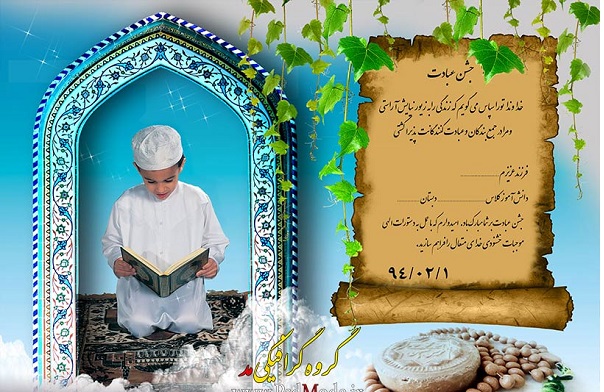 جشن عبادت
خداوندا تو را سپاس می گویم که زندگی را به زیور نیایش آراستی
و مرا در جمع بندگان و عبادت کنندگانت پذیرا گشتی
فرزند عزیزم ........................
دانش آموز کلاس .................. دبستان ..................
جشن عبادت بر شما مبارک باد. امیدوارم که با عمل به دستورات الهی
موجبات خشنودی خدای متعال را فراهم سازید.
۹۴/۰۲/۱
گروه گرافیکی مد